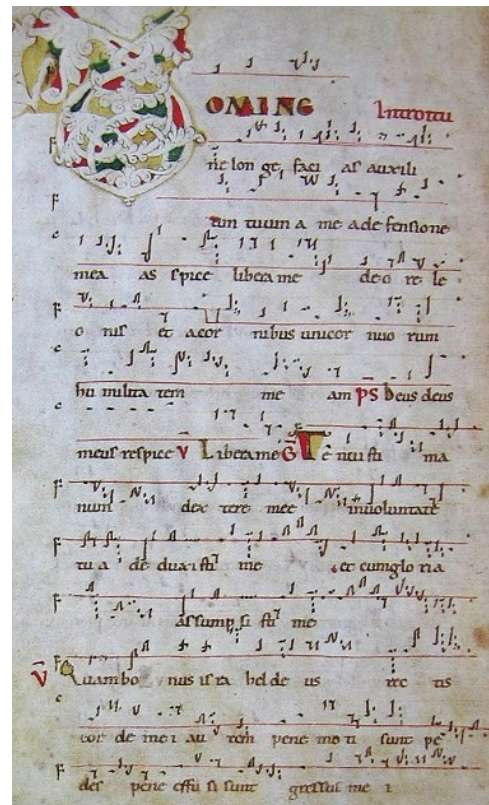 OMINE Introitu
ne lon ge faci as auxili
um tuum a me ad defensione
mea as spice libera me de o re le
o nis et a cor nibus unicor nuo rum
hu milita tem me am ps Deus deus
meus respice v Libera me G Te nui sti ma
num dex tere mee in voluntate
tu a de dux isti me et cum glo ria
assump si sti me
v Quam bo nus isra hel de us rec tis
cor de me i au tem pene mo ti sunt pe
des pene effu si sunt gressus me i